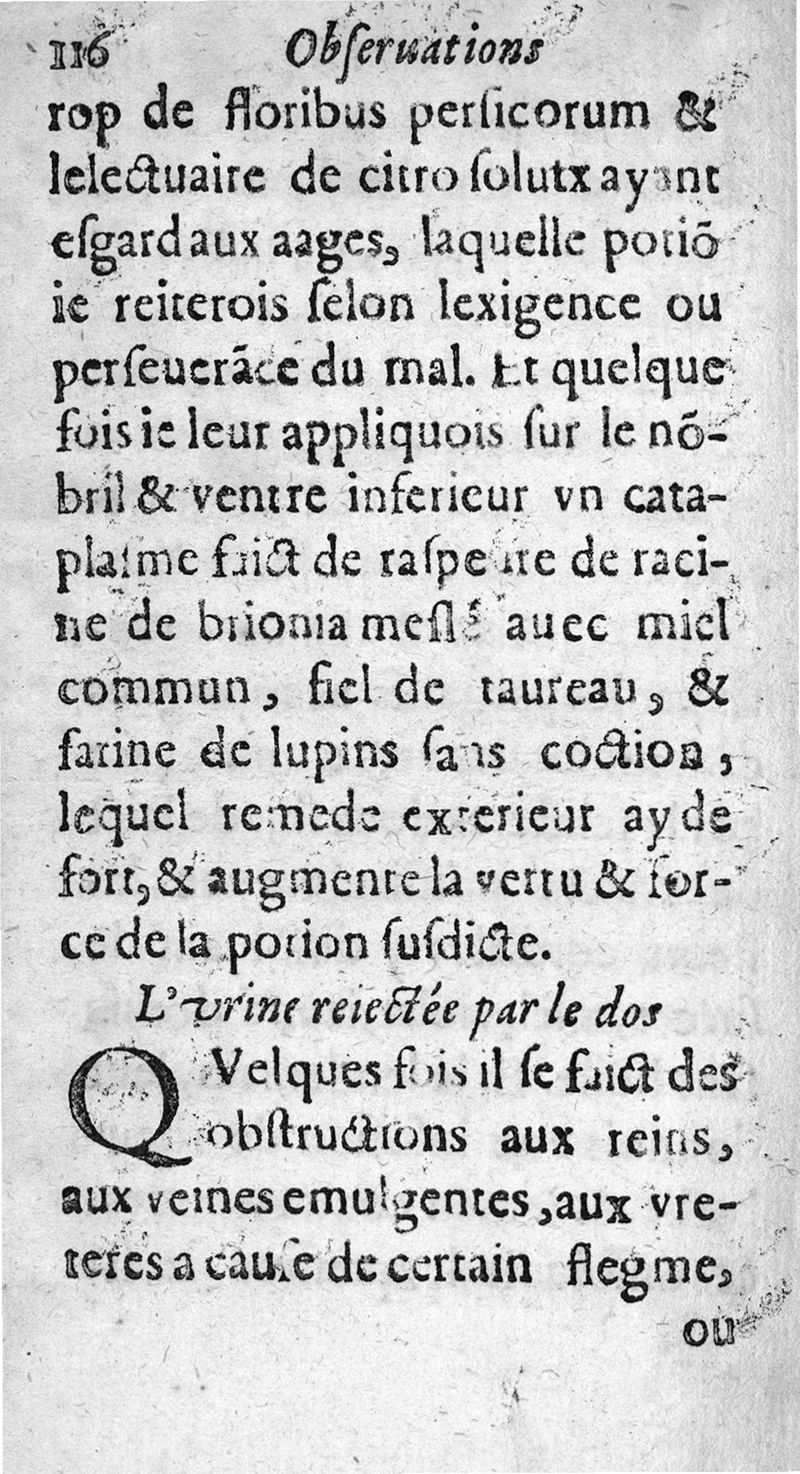 116 Obſeruations
rop de floribus perſicorum &
lelectuaire de citro ſolutx ayant
eſgard aux aages, laquelle potiō
ie reiterois ſelon lexigence ou
perſeuerāce du mal. Et quelque
fois ie leur appliquois ſur le nō-
bril & ventre inferieur vn cata-
plaſme faict de raſpeure de raci-
ne de brionia meſlé auec miel
commun, fiel de taureau, &
farine de lupins ſans coction,
lequel remede exterieur ayde
fort, & augmente la vertu & for-
ce de la potion ſuſdicte.
L'vrine reiectée par le dos
QVelques fois il ſe faict des
obſtructions aux reins,
aux veines emulgentes, aux vre-
teres a cauſe de certain flegme,
ou